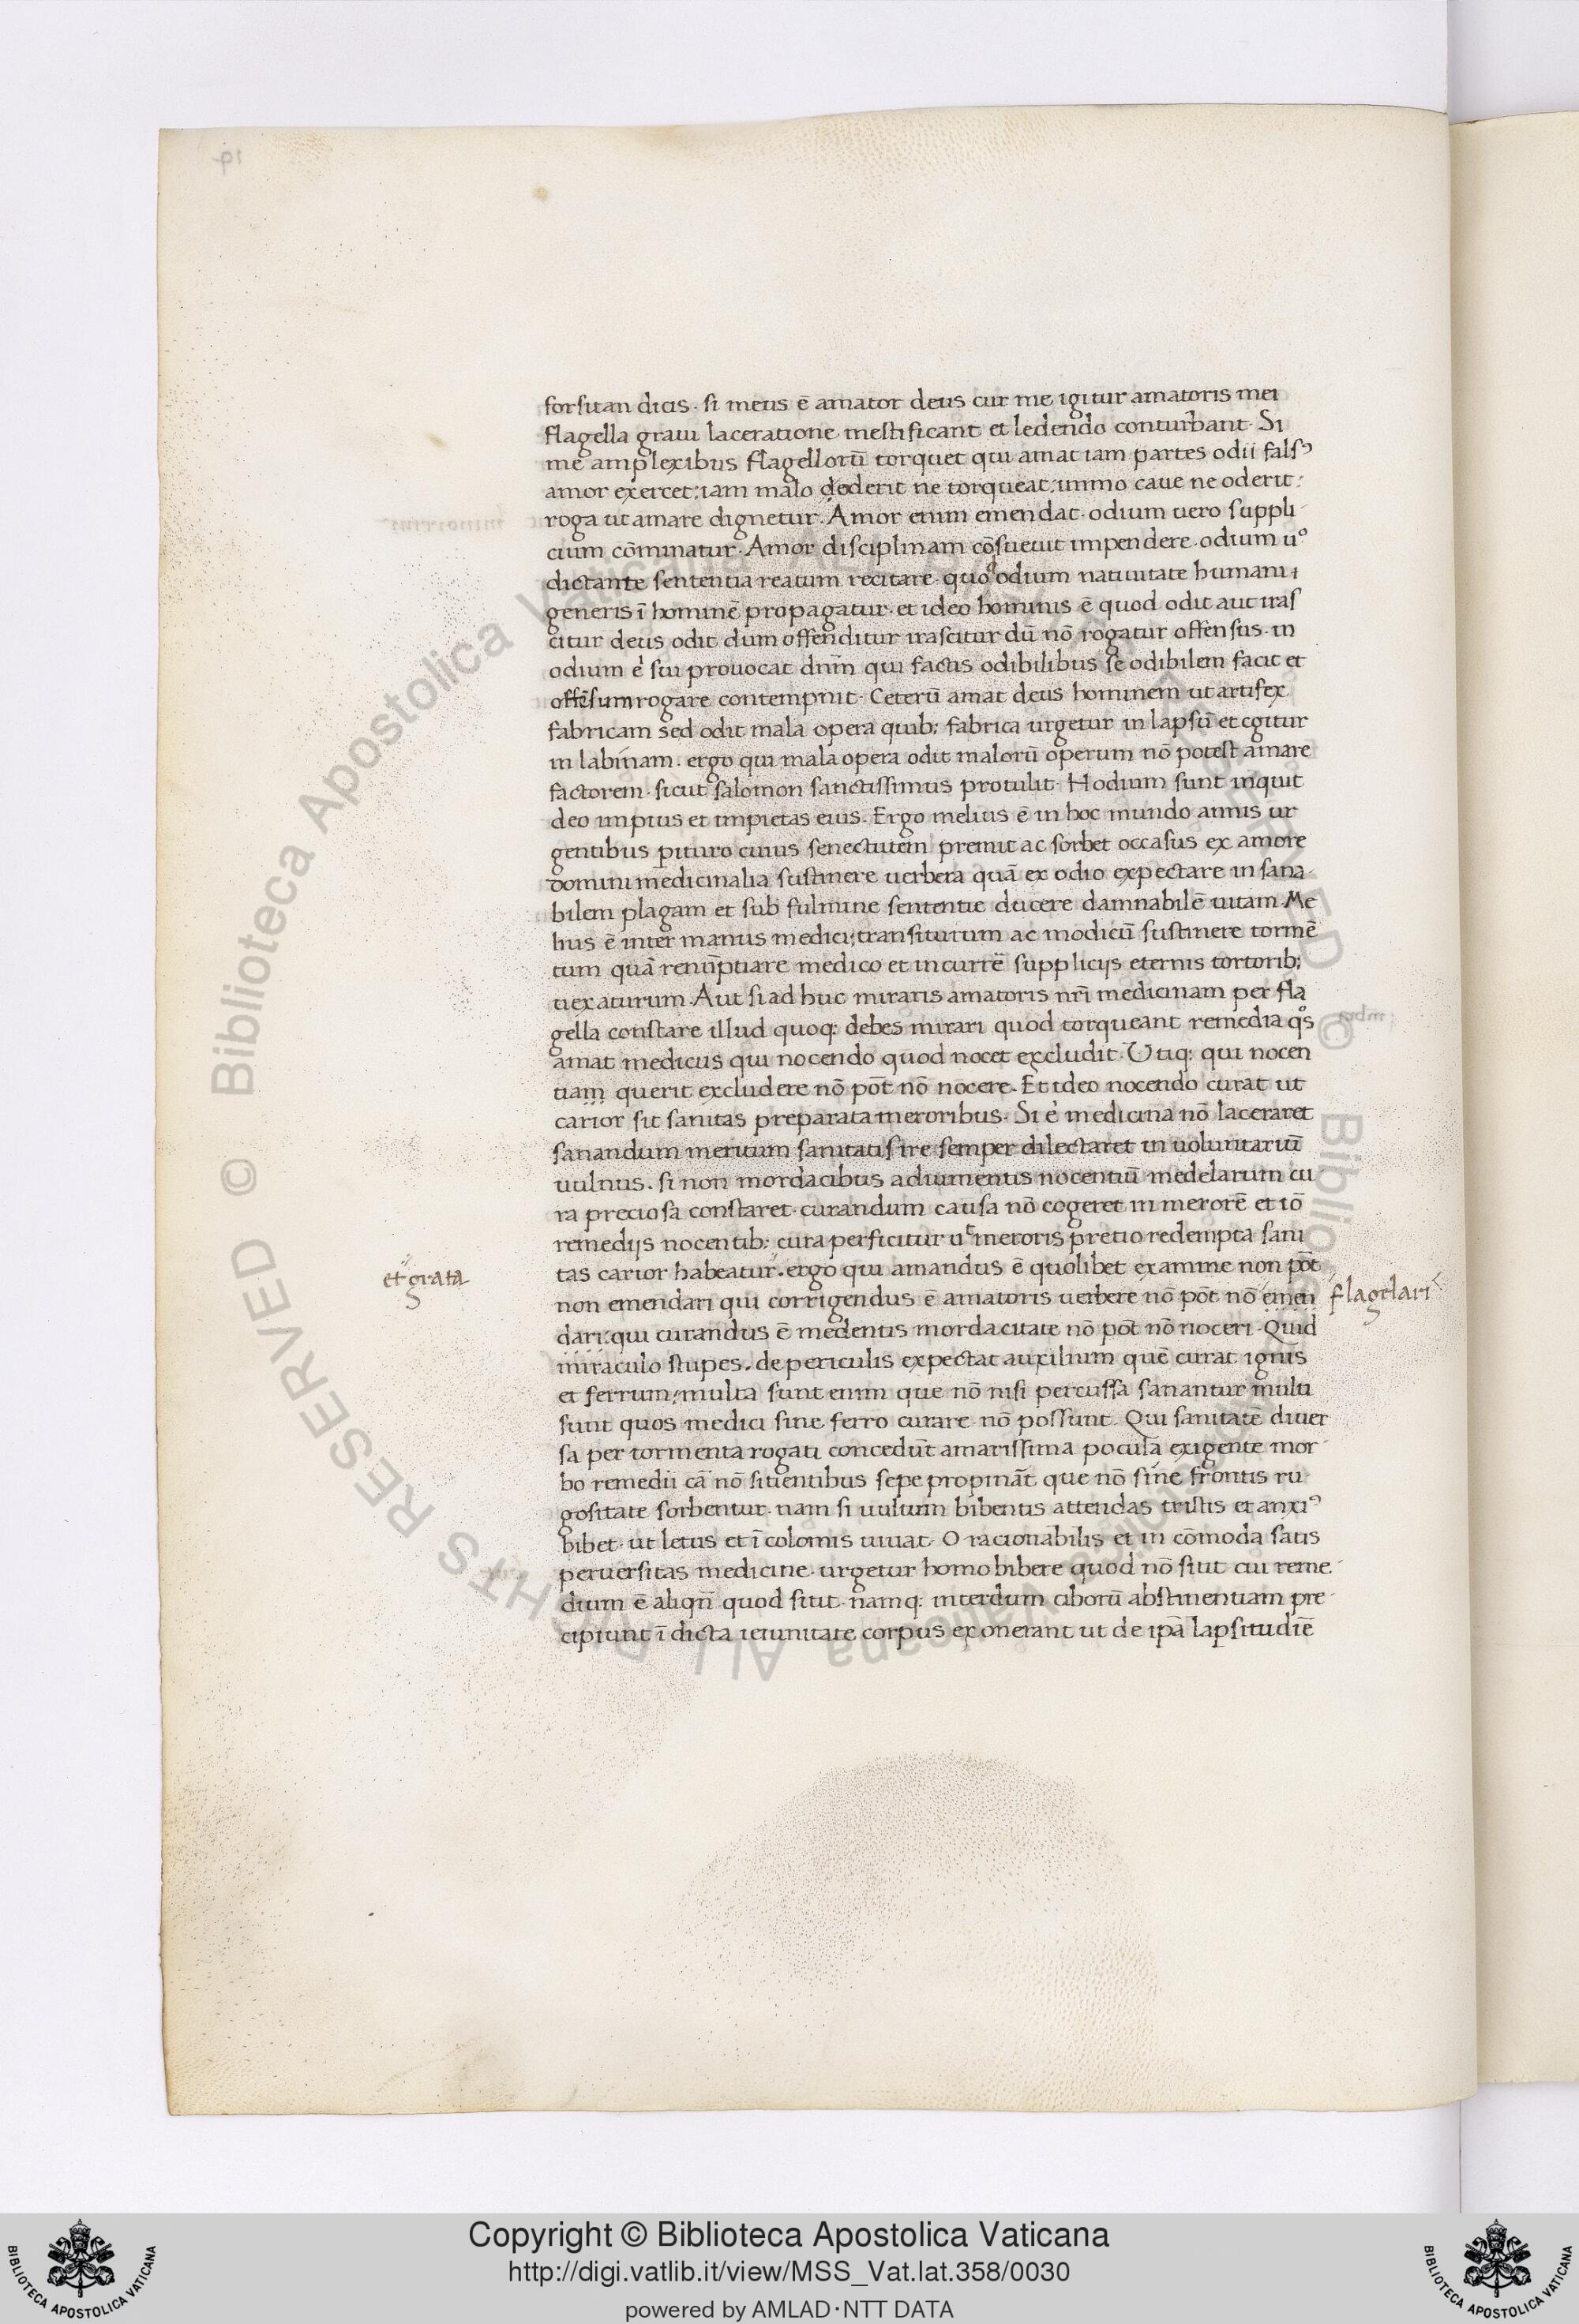 forsitan dicis. si meus ē amator deus cur me igitur amatoris mei
flagella graui laceratione mestificant et ledendo conturbant. Si
me amplexibus flagellorū torquet qui amat iam partes odii fals᾽
amor exercet; iam malo oderit ne torqueat; immo caue ne oderit:
roga ut amare dignetur. Amor enim emendat. odium uero suppli
cium cōminatur. Amor disciplinam cōsueuit impendere. odium uº
dictante sententia reatum recitare. quod odium natiuitate humani
generis ī hominē propagatur. et ideo hominis ē quod odit aut iras
citur deus odit dum offenditur irascitur dū nō rogatur offensus. in
odium e᾽ sui prouocat dnm̄ qui factis odibilibus se odibilem facit et
offēsum rogare contempnit. Ceterū amat deus hominem ut artifex
fabricam sed odit mala opera quib; fabrica urgetur in lapsū et cgitur
in labinam. ergo qui mala opera odit malorū operum nō potest amare
factorem. sicut salomon sanctissimus protulit. Hodium sunt inquit
deo impius et impietas eius. Ergo melius ē in hoc mundo annis ur
gentibus ꝑituro cuius senectutem premit ac sorbet occasus ex amore
domini medicinalia sustinere uerbera quā ex odio expectare in sana
bilem plagam et sub fulmine sententie ducere damnabilē uitam. Me
lius ē inter manus medici; transiturum ac modicū sustinere tormē
tum quā renūptiare medico et incurrē supplicijs eternis tortorib;
uexaturum. Aut si ad huc miraris amatoris nr̄i medicinam per fla
gella constare illud quoq: debes mirari quod torqueant remedia qºs
amat medicus qui nocendo quod nocet excludit. Utiq: qui nocen
tiam querit excludere nō pōt nō nocere. Et ideo nocendo curat ut
carior sit sanitas preparata meroribus. Si e᾽ medicina nō laceraret
sanandum meritum sanitatis ire semper dilectaret in uoluntariū
uulnus. si non mordacibus adiumentis nocentiū medelarum cu
ra preciosa constaret. curandum causa nō cogeret in merorē et iō
remedijs nocentib; cura perficitur ut meroris pretio redempta sani
et grata
tas carior habeatur. ergo qui amandus ē quolibet examine non pōt
non emendari qui corrigendus ē amatoris uerbere nō pōt nō emen
flagelari
dari: qui curandus ē medentis mordacitate nō pōt nō noceri. Quid
miraculo stupes. de periculis expectat auxilium quē curat ignis
et ferrum; multa sunt enim que nō nisi percussa sanantur multi
sunt quos medici sine ferro curare nō possunt. Qui sanitatē diuer
sa per tormenta rogati concedūt amarissima pocula exigente mor
bo remedii cā nō sitientibus sepe propināt que nō sine frontis ru
gositate sorbentur. nam si uultum bibentis attendas tristis et anxi᾽
bibet. ut letus et ī colomis uiuat. O racionabilis et in cōmoda satis
peruersitas medicine. urgetur homo bibere quod nō sitit cui reme
dium ē aliqn̄ quod sitit. namq: interdum ciborū abstinentiam pre
cipiunt ī dicta ieiunitate corpus exonerant ut de ipā lapsitudiē
Copyright © Biblioteca Apostolica Vaticana
http://digi.vatlib.it/view/MSS_Vat.lat.358/0030
powered by AMLAD·NTT DATA